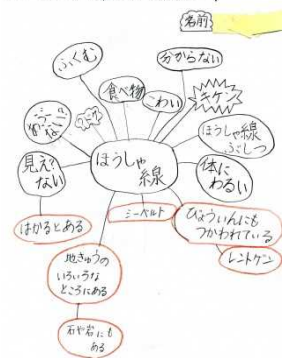 名前
ふくむ
分からない
食べ物
こわい
キケン
ほうしゃ線
ぶしつ
見え?
ない
ほうしゃ
線
体に
わるい
はかるとある
シーベルト
びょういんにも
つかわれている
レントゲン
地きゅうの
いろいろな
ところにある
石や岩にも
ある